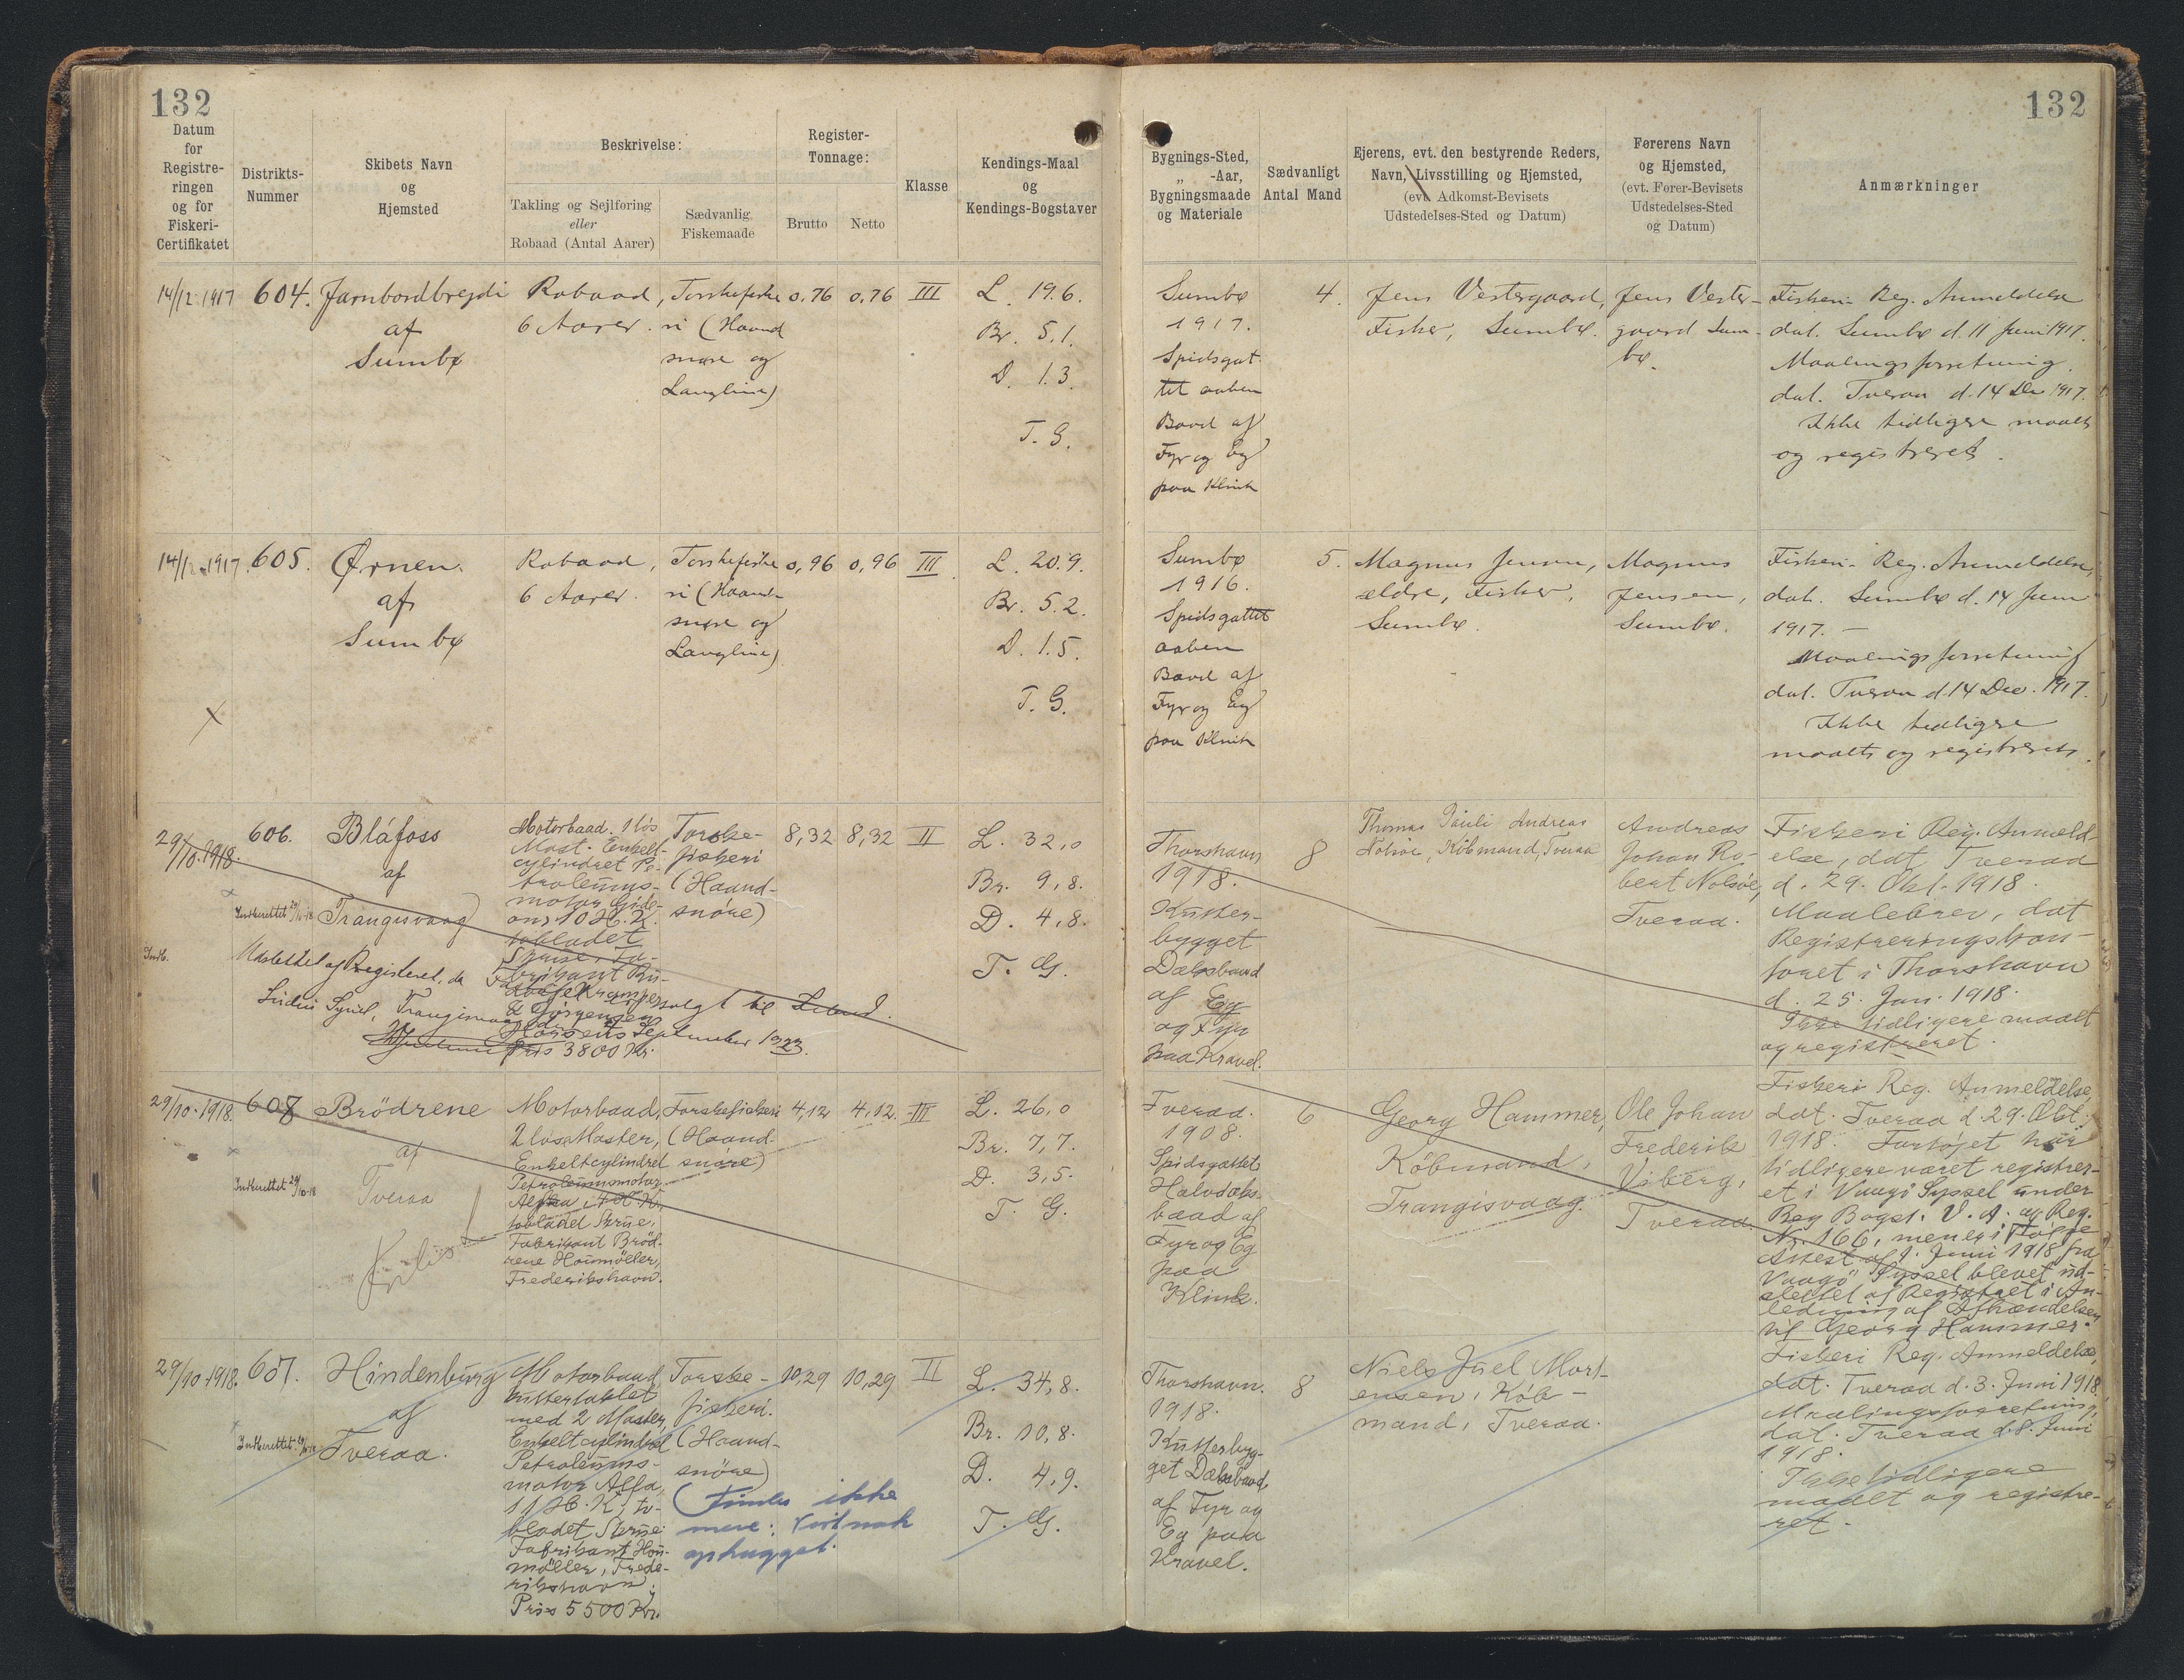 132
132
Datum
for
Registre-
ringen
og for
Fiskeri-
Certifikatet
Distrikts-
Nummer
Skibets Navn
og
Hjemsted
Beskrivelse:
Takling og Sejlføring
eller
Robaad (Antal Aarer)
Sædvanlig
Fiskemaade
Register-
Tonnage:
Brutto
Netto
Klasse
Kendings-Maal
og
Kendings-Bogstaver
Bygnings-Sted,
„ -Aar,
Bygningsmaade
og Materiale
Sædvanligt
Antal Mand
Ejerens, evt. den bestyrende Reders,
Navn, Livsstilling og Hjemsted,
(evt. Adkomst-Bevisets
Udstedelses-Sted og Datum)
Førerens Navn
og Hjemsted,
(evt. Fører-Bevisets
Udstedelses-Sted
og Datum)
Anmærkninger
14/12 1917
604.
Jarnbordbregdi
af
Sumbø
Robaad,
6 Aarer.
Torskefiske
ri (Haand
snøre og
Langline)
0,76
0,76
III
L. 19.6.
Br. 5.1.
D. 1.3.
T. G.
Sumbø
1917.
Spidsgat
tet aaben
Baad af
Fyr og Eg
paa Klink
4.
Jens Vestergaard,
Fisker, Sumbø.
Jens Vester-
gaard Sum-
bø.
Fiskeri- Reg. Anmeldelse
dat. Sumbø d. 11 Juni 1917.
Maalingsforretning
dat. Tveraa d. 14 Dec 1917.
Ikke tidligere maalt
og registreret.
14/12 1917.
605.
Ørnen.
af
Sumbø
Robaad,
6 Aarer.
Torskefiske
ri (Haand-
snøre og
Langline)
0,96
0,96
III
L. 20.9.
Br. 5.2.
D. 1.5.
T. G.
Sumbø
1916.
Spidsgattet
aaben
Baad af
Fyr og Eg
paa Klink
5.
Magnus Jensen,
ældre, Fisker,
Sumbø.
Magnus
Jensen,
Sumbø.
Fiskeri- Reg. Anmeldelse,
dat. Sumbø d. 14 Juni
1917. –
Maalingsforretning
dat. Tveraa d. 14 Dec. 1917.
Ikke tidligere
maalt og registreret.
29/10. 1918.
606.
Bláfoss
af
Trangisvaag
Motorbaad. 1 løs
Mast. Enkelt-
cylindret Pe-
troleums-
motor Gide-
on, 10 H.K.
tobladet
Skrue, Fa-
brikant Ru-
dolf Kramper
& Jørgensen
Horsens
Pris 3800 Kr.
Torske-
fiskeri
(Haand-
snöre)
8,32
8,32
II
L. 32,0
Br. 9,8.
D. 4,8.
T. G.
Indberettet 29/10-18
Indb.
Udslettet af Registeret, da Fartøjet er solgt til
Trangisvaag
September 1923.
Thorshavn
1918.
Kutter-
bygget
Dæksbaad
af Eg
og Fyr
paa Kravel.
8
Thomas Pauli Andreas
Nolsøe, Købmand, Tveraa
Andreas
Johan Ro-
bert Nolsøe,
Tveraa.
Fiskeri Reg. Anmeld-
else, dat Tveraa
d. 29. Okt. 1918.
Maalebrev, dat
Registreringskon-
toret i Thorshavn
d. 25. Jan. 1918.
Ikke tidligere maalt
og registreret.
29/10. 1918.
608
Brödrene
af
Tveraa
Indberettet 29/10-18
Motorbaad,
2 løse Master,
Enkeltcylindret
Petroleumsmotor
Alpha, 4 H.K.
tobladet Skrue,
Fabrikant Bröd-
rene Houmöller,
Frederikshavn.
Torskefiskeri
(Haand-
snöre)
4,12
4,12.
III
L. 26,0
Br. 7,7.
D. 3,5.
T. G.
Tveraa.
1908.
Spidsgattet
Halvdæks-
baad af
Fyr og Eg
paa
Klink.
6
Georg Hammer,
Købmand,
Trangisvaag.
Ole Johan
Frederik
Viberg,
Tveraa
Fiskeri Reg. Anmeldelse,
dat. Tveraa d. 29. Okt.
1918. Fartøjet har
tidligere været registrer-
et i Vaagö Syssel under
Reg Bogst. V. A. og Reg.
Nr. 166, men er i Følge
Attest af 1. Juni 1918 fra
Vaagö Syssel blevet ud-
slettet af Registret i An-
ledning af Afhændelsen
til Georg Hammer.
29/10. 1918.
607.
Hindenburg
af
Tveraa.
Indberettet 29/10-18
Motorbaad
kuttertaklet
med 2 Master,
Enkeltcylindret
Petroleums-
motor Alfa,
11 H.K., to-
bladet Skrue
Fabrikant Hou-
möller, Frede-
rikshavn.
Pris 5500 Kr.
Torske-
fiskeri.
(Haand-
snöre)
(Findes ikke
mere: vist nok
ophugget.
10,29
10,29
II
L. 34,8.
Br. 10,8.
D. 4,9.
T. G.
Thorshavn.
1918.
Kutterbyg-
get Dæksbaad
af Fyr og
Eg paa
Kravel.
8
Niels Juel Mort-
ensen, Køb-
mand, Tveraa.
Fiskeri Reg. Anmeldelse,
dat. Tveraa d. 3. Juni 1918.
Maalingsforretning,
dat. Tveraa d. 8. Juni
1918.
Ikke tidligere
maalt og registre-
ret.